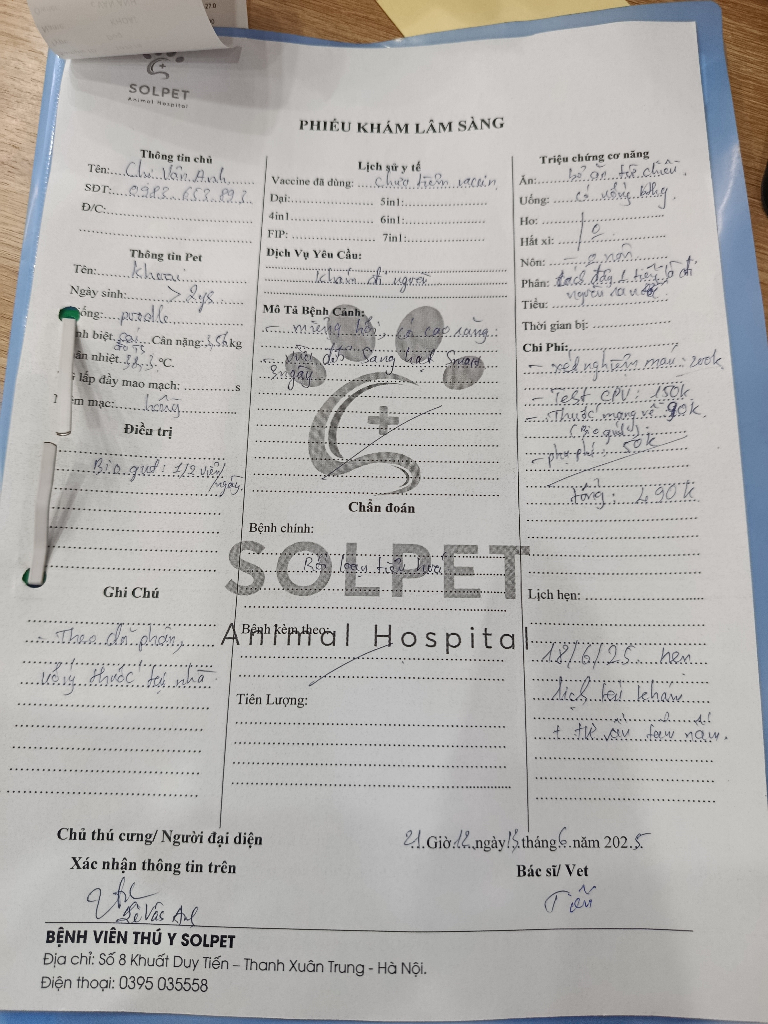 SOLPET
Animal Hospital
PHIẾU KHÁM LÂM SÀNG
Thông tin chủ
Tên: Chị Vân Anh
SĐT: 0983 653 893
Đ/C:
Thông tin Pet
Tên: khoai
Ngày sinh: > 2ys
ống: poodle
nh biệt: cái Cân nặng: 3,5kkg
ân nhiệt 38,3 °C.
i lấp đầy mao mạch: s
êm mạc: hồng
Điều trị
Bio gut: 1/2 viên/
ngày
Ghi Chú
- Theo dõi phân,
uống thuốc tại nhà
Lịch sử y tế
Vaccine đã dùng: chưa tiêm vaccin
Dại: 5in1:
4in1 6in1:
FIP: 7in1:
Dịch Vụ Yêu Cầu:
khám đi ngoài
Mô Tả Bệnh Cảnh:
- miệng hôi, có cao răng.
3 ngày
Chẩn đoán
Bệnh chính:
Rối loạn tiêu hoá
SOLPET
Animal Hospital
Bệnh kèm theo:
Tiên Lượng:
Triệu chứng cơ năng
Ăn: bỏ ăn từ chiều
Uống: có uống
Ho:
Hắt xì: 0
Nôn: - 2 nôn
Phân:
Tiểu:
Thời gian bị:
Chi Phí:
- xét nghiệm máu: 200k
- Test CPV: 150k
- Thuốc mang về 90k.
(Bio gut)
- phụ phí: 50k
tổng: 490k
Lịch hẹn:
18/6/25 hẹn
lịch tái khám
+ tư vấn
Chủ thú cưng/ Người đại diện
Xác nhận thông tin trên
Lê Vân Anh
21 Giờ 12 ngày 15 tháng 6 năm 2025
Bác sĩ/ Vet
Tiến
BỆNH VIÊN THÚ Y SOLPET
Địa chỉ: Số 8 Khuất Duy Tiến – Thanh Xuân Trung - Hà Nội.
Điện thoại: 0395 035558